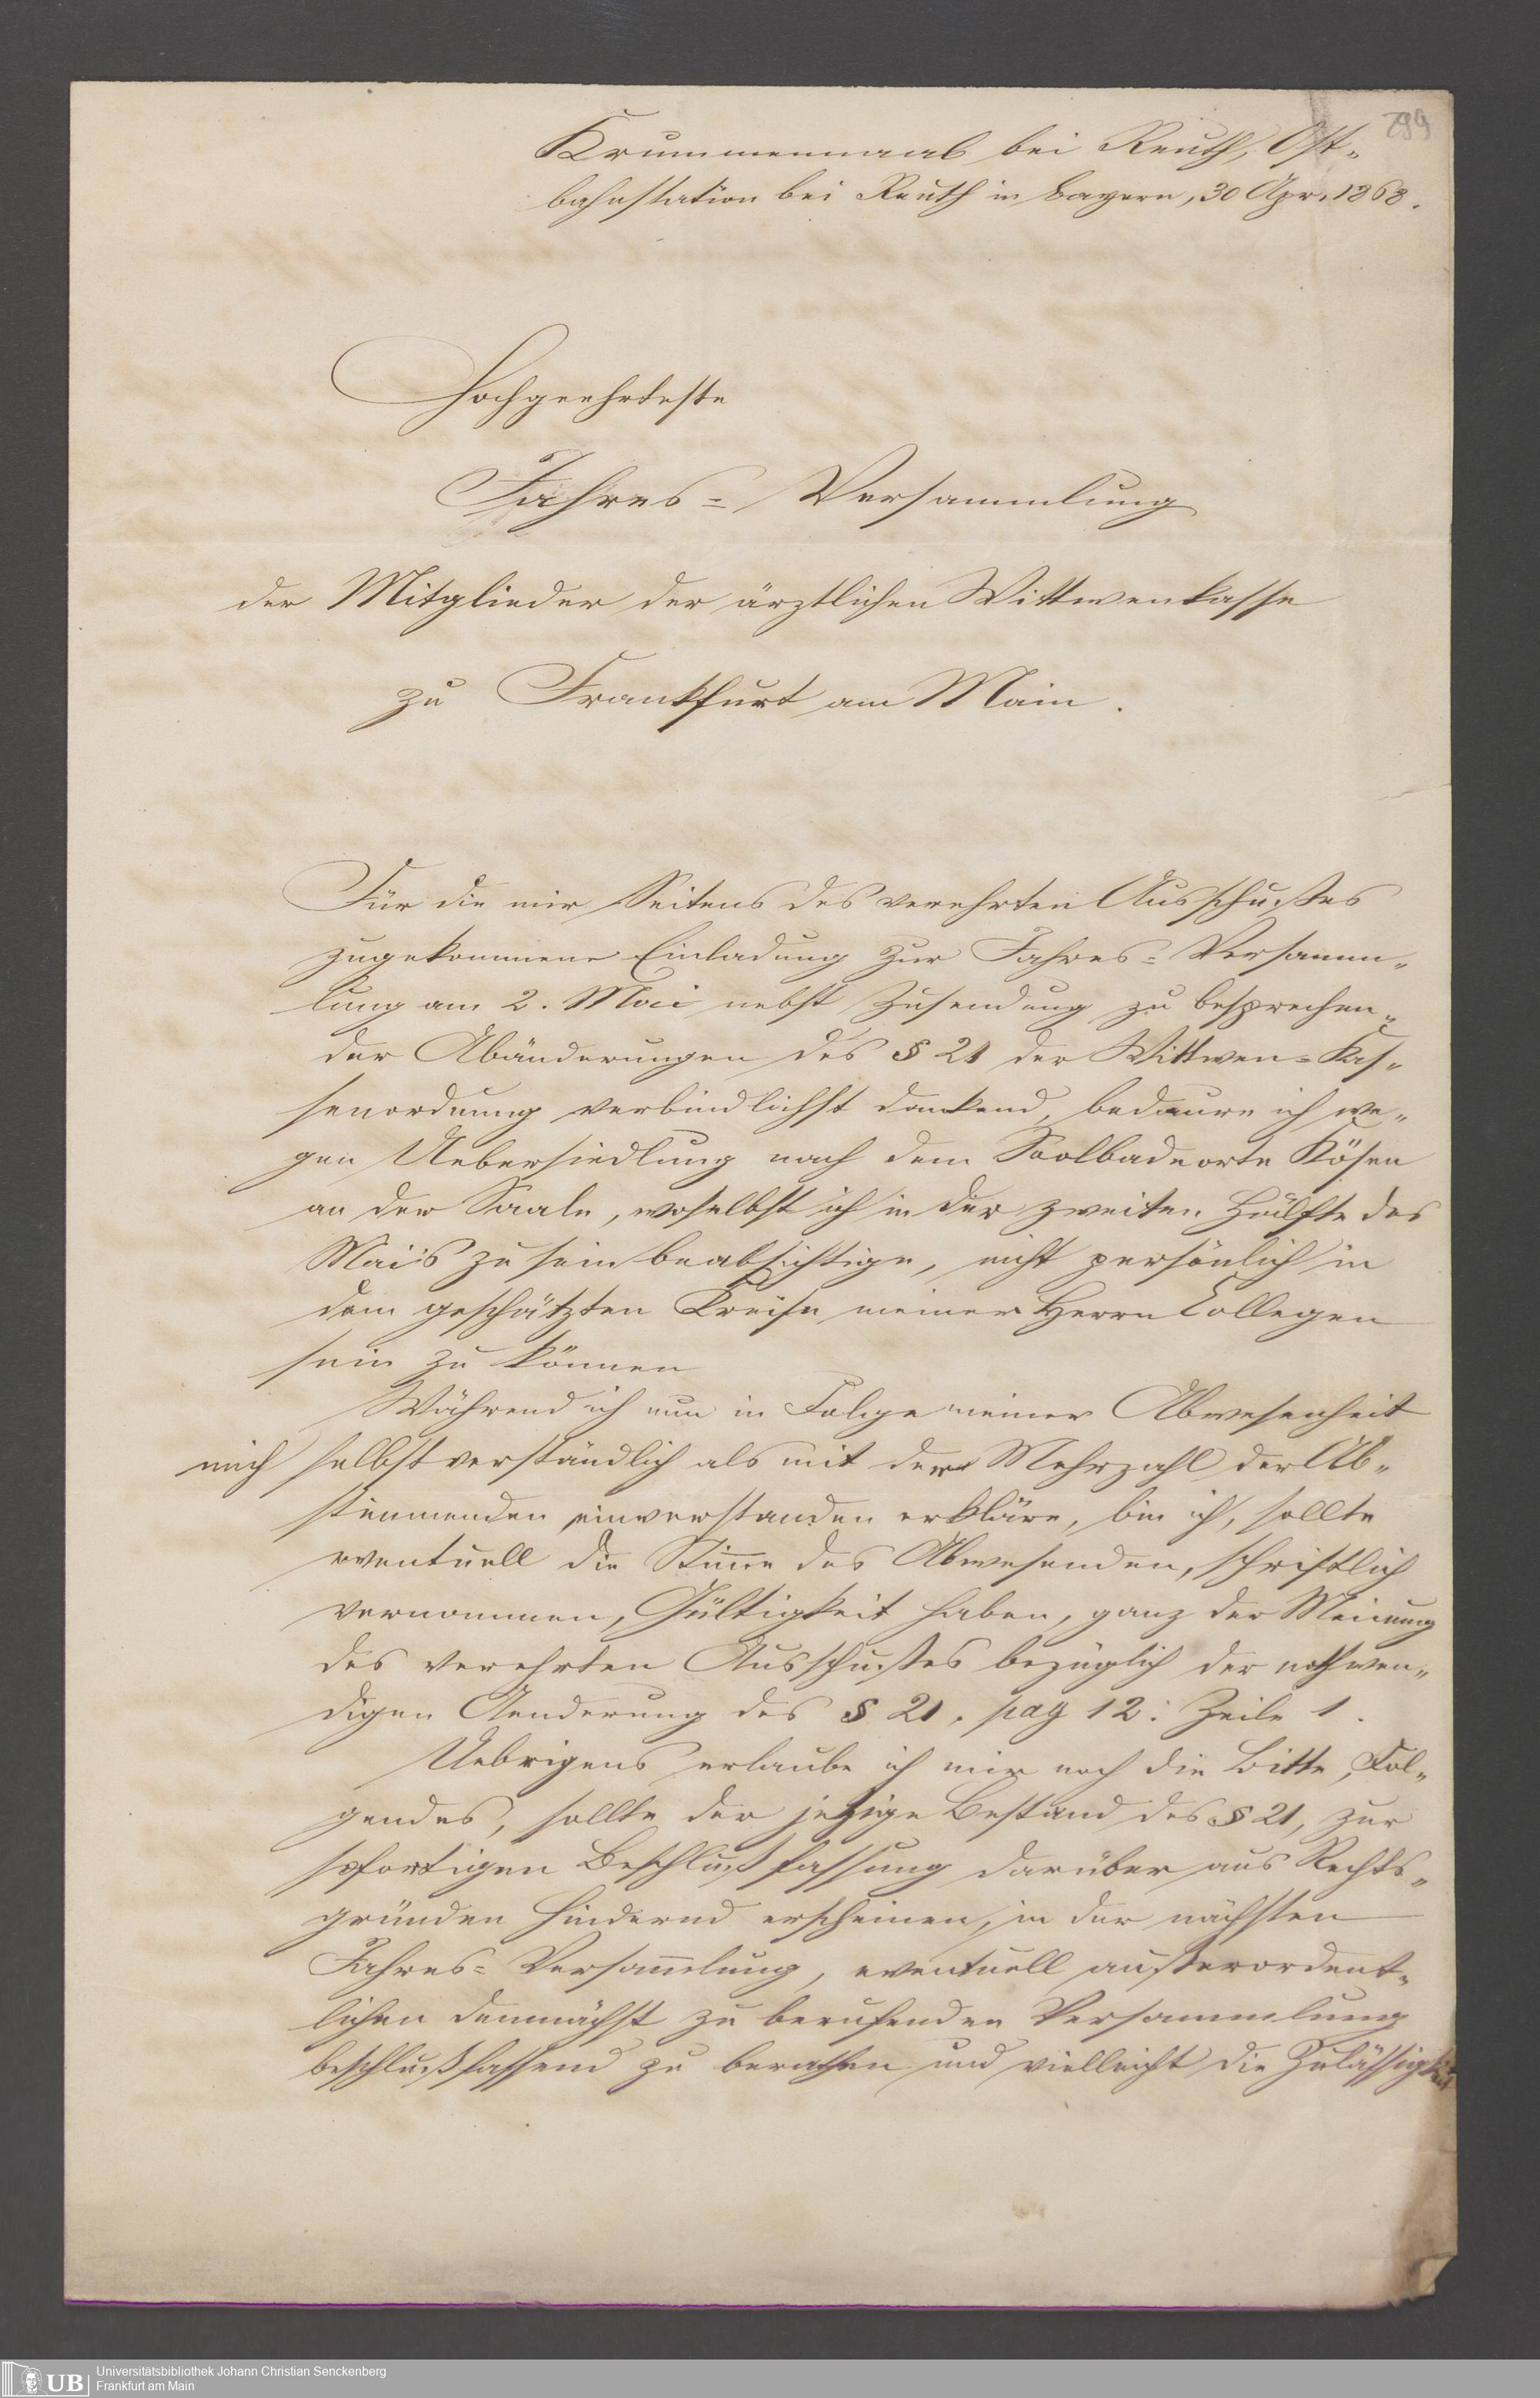 299
Krummennaab bei Reuth, Ost-
bahnstation bei Reuth in Bayern, 30 Apr. 1868.
Hochgeehrteste
Jahres-Versammlung
der Mitglieder der ärztlichen Wittwenkasse
zu Frankfurt am Main.
Für die mir Seitens des verehrten Ausschußes
zugekommene Einladung zur Jahres-Versamm-
lung am 2. Mai nebst Zusendung zu besprechen-
der Abänderungen des § 21 der Wittwen-Kas-
senordnung verbindlichst dankend, bedaure ich we-
gen Uebersiedlung nach dem Soolbadeorte Kösen
an der Saale, woselbst ich in der zweiten Hälfte des
Mai's zu sein beabsichtige, nicht persönlich in
dem geschätzten Kreise meiner Herrn Collegen
sein zu können
Während ich nun in Folge meiner Abwesenheit
mich selbstverständlich als mit der Mehrzahl der Ab-
stimmenden einverstanden erkläre, bin ich, sollte
eventuell die Stimme des Abwesenden, schriftlich
vernommen, Gültigkeit haben, ganz der Meinung
des verehrten Ausschußes bezüglich der nothwen-
digen Aenderung des § 21, pag 12: Zeile 1.
Uebrigens erlaube ich mir noch die Bitte, Fol-
gendes, sollte der jetzige Bestand des § 21, zur
sofortigen Beschlußfassung darüber aus Rechts-
gründen hindernd erscheinen, in der nächsten
Jahres-Versammlung, eventuell außerordent-
lichen demnächst zu berufenden Versammlung
beschlußfassend zu berathen und vielleicht die Zulässigkeit
UB
Universitätsbibliothek Johann Christian Senckenberg
Frankfurt am Main